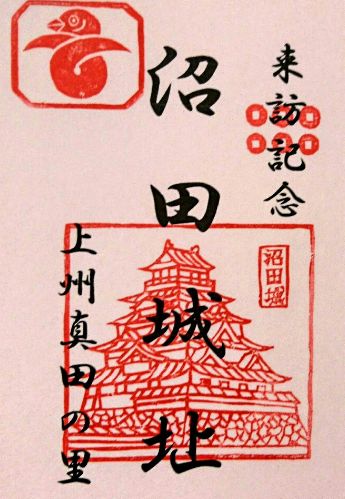 来訪記念
沼田城址
沼田城
上州真田の里